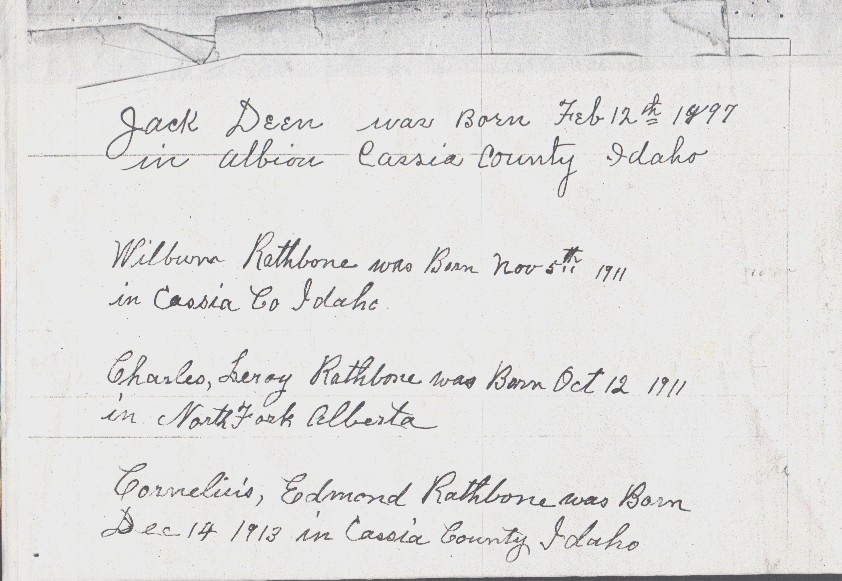 Jack Deen was Born Feb 12th 1897
in Albion Cassia County Idaho
Wilburn Rathbone was Born Nov 5th 1911
in Cassia Co Idaho
Charles, Leroy Rathbone was Born Oct 12 1911
in North Fork Alberta
Cornelius, Edmond Rathbone was Born
Dec 14 1913 in Cassia County Idaho